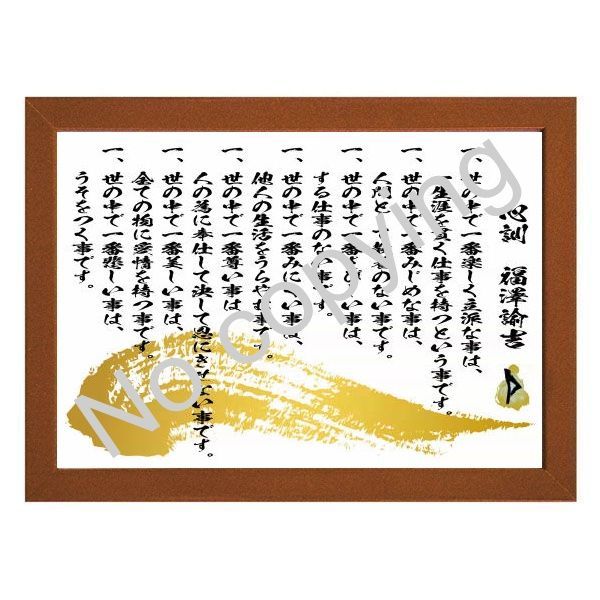 心訓 福澤諭吉
一、世の中で一番楽しく立派な事は、
生涯を貫く仕事を持つという事です。
一、世の中で一番みじめな事は、
人間として教養のない事です。
一、世の中で一番さびしい事は、
する仕事のない事です。
一、世の中で一番みにくい事は、
他人の生活をうらやむ事です。
一、世の中で一番尊い事は、
人の為に奉仕して決して恩にきせない事です。
一、世の中で一番美しい事は、
全ての物に愛情を持つ事です。
一、世の中で一番悲しい事は、
うそをつく事です。
No copying